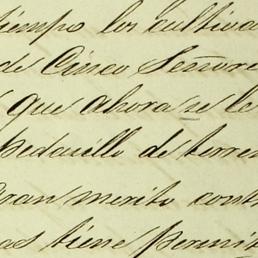 tiempo los cultiva
de Cinco Señore
que ahora se le
pedacillo de terre
Gran merito cont
as tiene permit